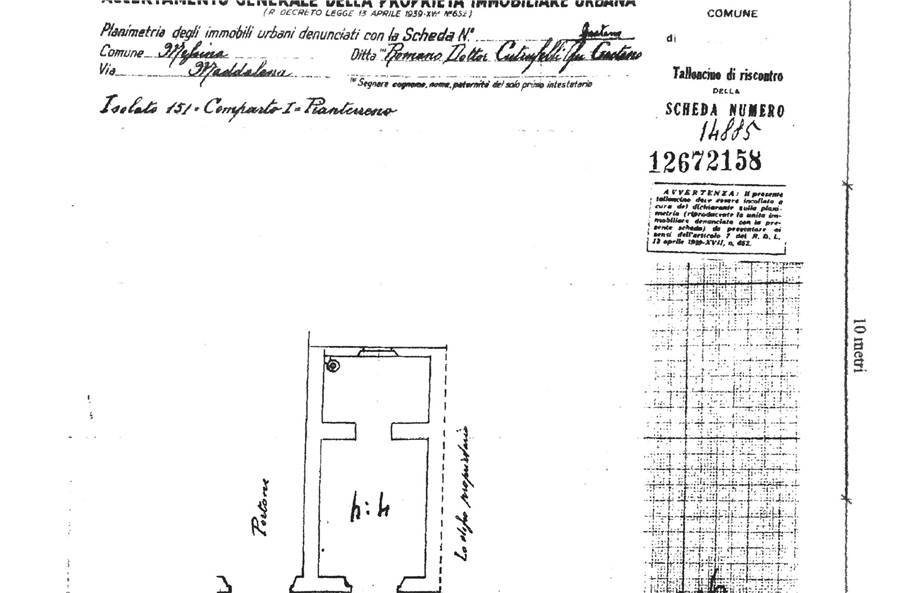 ACCERTAMENTO GENERALE DELLA PROPRIETÀ IMMOBILIARE URBANA
(R. DECRETO LEGGE 13 APRILE 1939-XVII N° 652)
Planimetria degli immobili urbani denunciati con la Scheda N°
Comune Messina Ditta (1) Romano Dottor Gaetano
Via Maddalena
(1) Segnare cognome, nome, paternità del solo primo intestatario
Isolato 151 = Comparto I = Pianterreno
COMUNE
di
Talloncino di riscontro
DELLA
SCHEDA NUMERO
14885
12672158
AVVERTENZA: Il presente
talloncino deve essere incollato a
cura del dichiarante sulla plani-
metria (riproducente la unità im-
mobiliare denunciata con la pre-
sente scheda) da presentare ai
sensi dell'articolo 7 del R. D. L.
13 aprile 1939-XVII, n. 652.
10 metri
Portone
Lo stesso proprietario